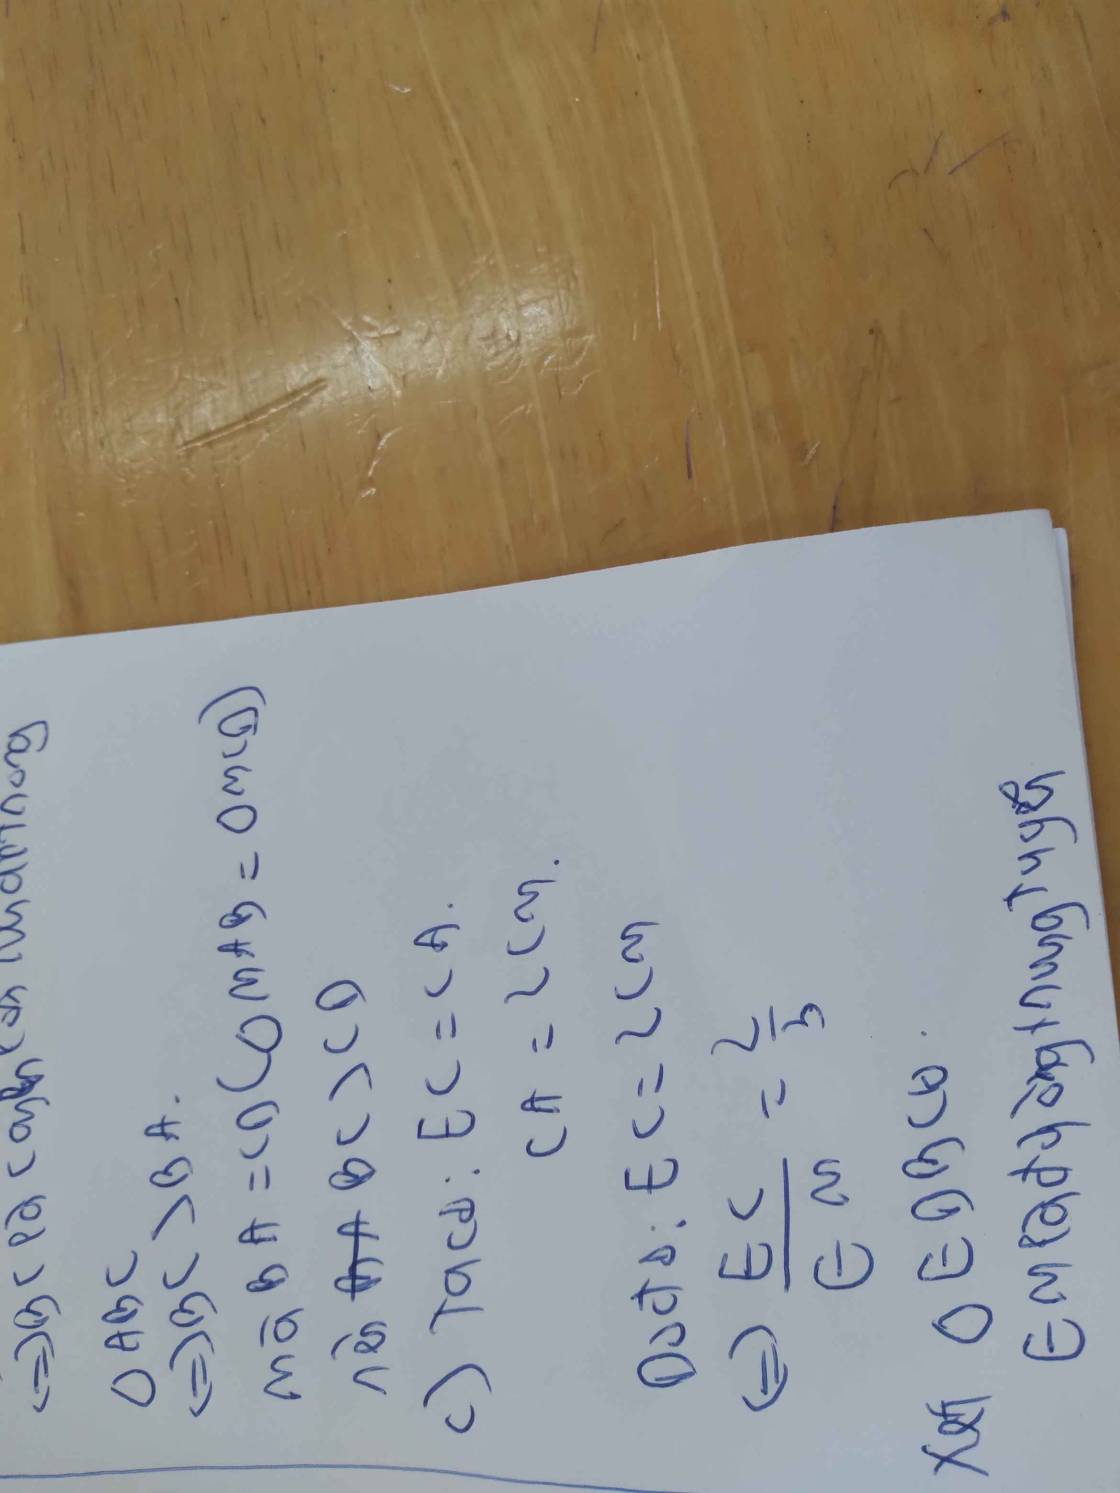 =) BC là cạnh lớn nhất trong
△ABC
=) BC > BA.
mà BA = CD (△MAB = △MCD)
nên BC > CD
c) Ta có: EC = CA.
CA = 2CM.
Do đó: EC = 2CM
=) EC/EM = 2/3
Xét △EBD có.
EM là đường trung tuyến